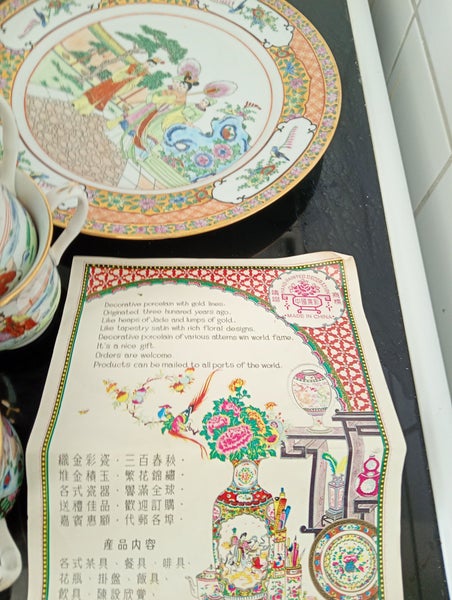 Decorative porcelain with gold lines.
Originated three hundred years ago.
Like heaps of Jade and lumps of gold.
Like tapestry satin with rich floral designs.
Decorative porcelain of various atterns win world fame.
It's a nice gift.
Orders are welcome.
Products can be mailed to all parts of the world.
中國製影
MADE IN CHINA
織金彩瓷·三百春秋
堆金積玉·繁花錦繡·
各式瓷器·譽滿全球·
送禮佳品·歡迎訂購·
嘉賓惠顧·代郵各埠·
産品内容
各式茶具、餐具、啡具、
花瓶、掛盤、飯具、
飲具、陳設欣賞、